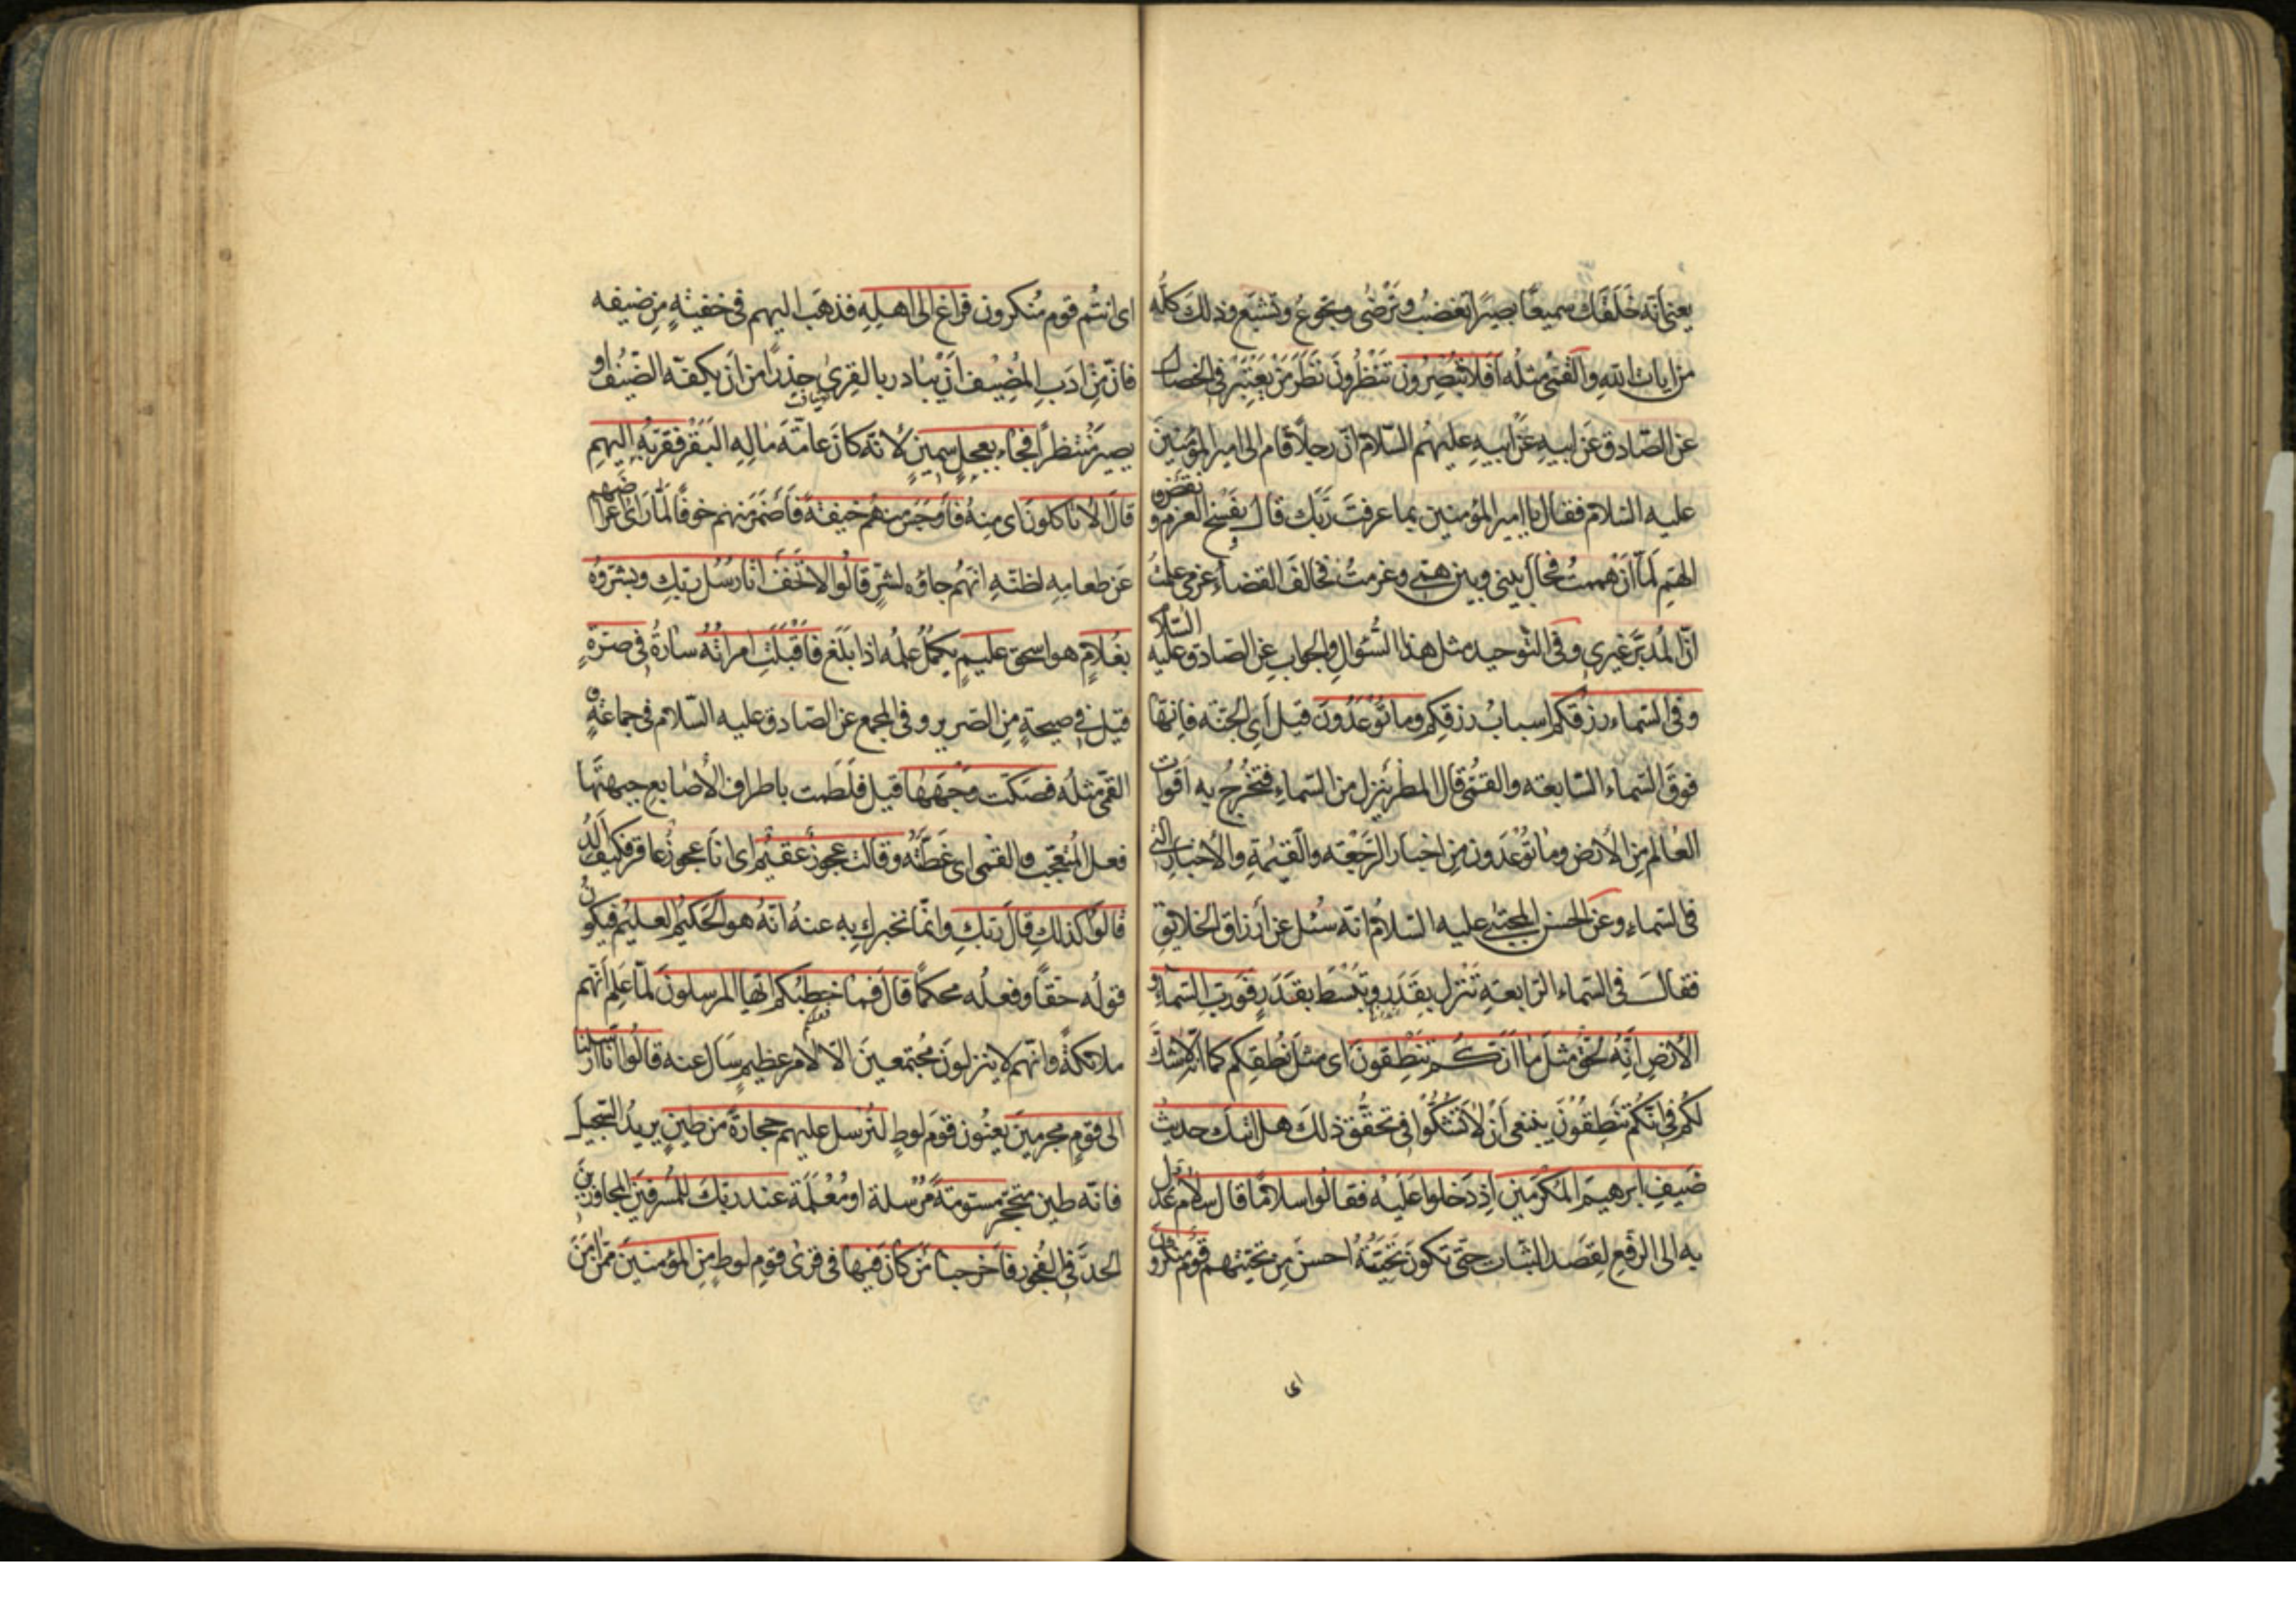 يعنى انّه خَلَقَك سميعًا بصيرًا تغضبُ و تَرْضى و تجوعُ و تشبَع و ذلك كلّه
من ايات الله و القمّى مثلُه اَفَلا تُبْصِرُونَ تَنْظُرونَ نَظَرَ مَنْ يَعْتَبِرُ فى الخصال
عن الصّادق عَن ابيهِ عَن ابيهِ عليهُم السّلام انّ رجلًا قام الى امير المؤمنين
عليه السّلام فقال يا امير المؤمنين بما عرفتَ ربَّك قال بفَسْخِ العزم و نقض
الهمّ لَمّا اَنْ هممتُ فحالَ بينى و بين همّى و عزمتُ فخالَفَ القضاءُ عزمى علمتُ
انّ المُدبّر غيرى و فى التّوحيد مثل هذا السُّؤال و الجواب عن الصّادق عليه السّلام
و فى السّماء رزقكم اسبابُ رزقكم و ما تُوعَدُونَ قيل اَىِ الجنّة فانّها
فوقَ السّماء السّابعة و القمّى قال المطر يَنزِل من السّماءِ فتخرُجُ به اَقوات
العالم مِن الأرض و ما تُوعَدون مِن اخبار الرَّجْعة و القيٰمة و الأخبار الّتى
فى السّماءِ و عَن الحسن المجتبى عليه السّلامُ انّه سُئل عن اَرزاق الخلائقِ
فقالَ فى السّماء الرّابعةِ تَنْزل بقَدَرٍ و تَبْسُط بقَدَرٍ فوَرَبِ السّماءِ و
الأرضِ اِنَّهُ لحقٌّ مثلَ ما اَنّكُم تَنْطِقونَ اى مثلَ نُطقِكم كما انّه لا شكَّ
لكُم فى انّكُم تَنْطِقُوْنَ ينبغى اَنْ لا تَشُكُّوا فى تحقّقِ ذلكَ هل اتيك حديثُ
ضَيفِ ابرهيمَ المُكْرَمين اِذ دَخلوا عَلَيْه فقالُوا سلامًا قالَ سلامٌ عدل
به الى الرّفعِ لِقَصد الثّبات حتّى تكونَ تَحِيّتُهُ احسنَ مِن تحيّتهم قومٌ منكرون
اى
اى انتُم قوم مُنكرون فراغَ الى اهلِهِ فذهَب اليهم فى خفيةٍ مِن ضيفه
فانّ مِن ادَبِ المُضِيْف اَنْ يُبادر بالقِرىٰ حِذرًا من اَن يكفّه الضّيفُ او
يصيرَ مُنْتظرًا فجاء بعجلٍ سمينٍ لأنّه كانَ عامّةَ مالِهِ البقَرُ فقرّبهُ اليهِم
قالَ الا تاكلونَ اى مِنهُ فاَوجَسَ منهُم خيفةً فاَضمَرَ منهم خوفًا لمّا راى اعراضهم
عَن طعامِهِ لظنّه انّهُم جاؤُه لشرٍّ قالُوا لا تَخَفْ انّا رسُل ربّكِ و بشّروهُ
بغُلامٍ هو اسحقَ عليمٍ يكمُلُ علمُه اذا بَلَغَ فاَقْبَلَتِ امراتُهُ سارةُ فى صرّةٍ
قيل فى صيحةٍ مِن الصّرير و فى المجمع عن الصّادق عليه السّلامُ فى جماعةٍ و
القمّى مثلُه فصَكّت وَجْهَهَا قيل فلَطَمت باطراف الأصابع جبهتَها
فعلَ المُتعجّب و القمّى اى غَطّتْهُ و قالت عجوزٌ عقيمٌ اى انَا عجوزٌ عاقر فكيفَ اَلِدُ
قالُوا كذلكِ قالَ رَبّكِ و انّما نُخبرك بِه عنهُ انّهُ هو الحَكيمُ العليمُ فيكون
قولُه حقًّا و فعلُه محكمًا قالَ فما خطبُكم ايّها المرسلون لَمّا عَلِم اَنّهم
ملائكةٌ و انّهم لا ينزلون مُجتمعينَ الّا لأمر عظيمٍ سَال عنه قالُوا انّا ارسلنا
الى قومٍ مجرمينَ يعنُون قومَ لوطٍ لنُرسل عليهم حجارةً من طينٍ يريدُ السّجيلَ
فانّه طين متحجّر مسوّمةً مُرْسلة او مُعْلَمَة عند ربّكَ للمُسرفين المجاوزين
الحدّ فى الفُجور فاَخرجنا مَن كانَ فيها فى قرىٰ قومِ لوطٍ مِن المؤمنينَ ممّن امَنَ